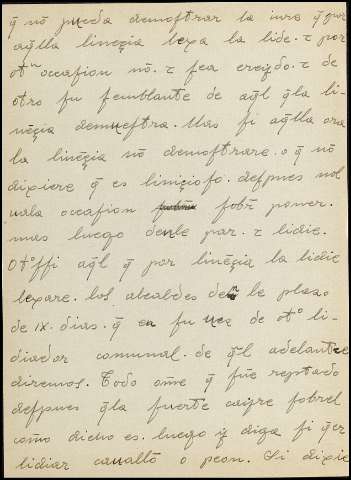 q̃ nõ pueda demostrar la iura q̃ por
aq̃lla lineçia lexa la lide. τ por
otⁿ occasion nõ. τ sea creydo. τ de
otro su semblante de aq̃l q̃la li-
nēçia demuestra. Mas si aq̃lla ora
la linēçia nõ demostrare. o q̃ nõ
dixiere q̃ es liniçioso. despues nol
uala occasion sobr̃ poner.
mas luego denle par. τ lidie.
Otºssi aq̃l q̃ por linēçia la lidie
lexare. los alcaldes denle plazo
de ix. dias. q̃ en su uez de otº li-
diador comunal. de q̃l adelante
diremos. Todo om̃e q̃ fue reptado
despues q̃la suerte cayre sobrel
como dicho es. luego y diga si q̃er
lidiar cauallº o peon. Si dixie